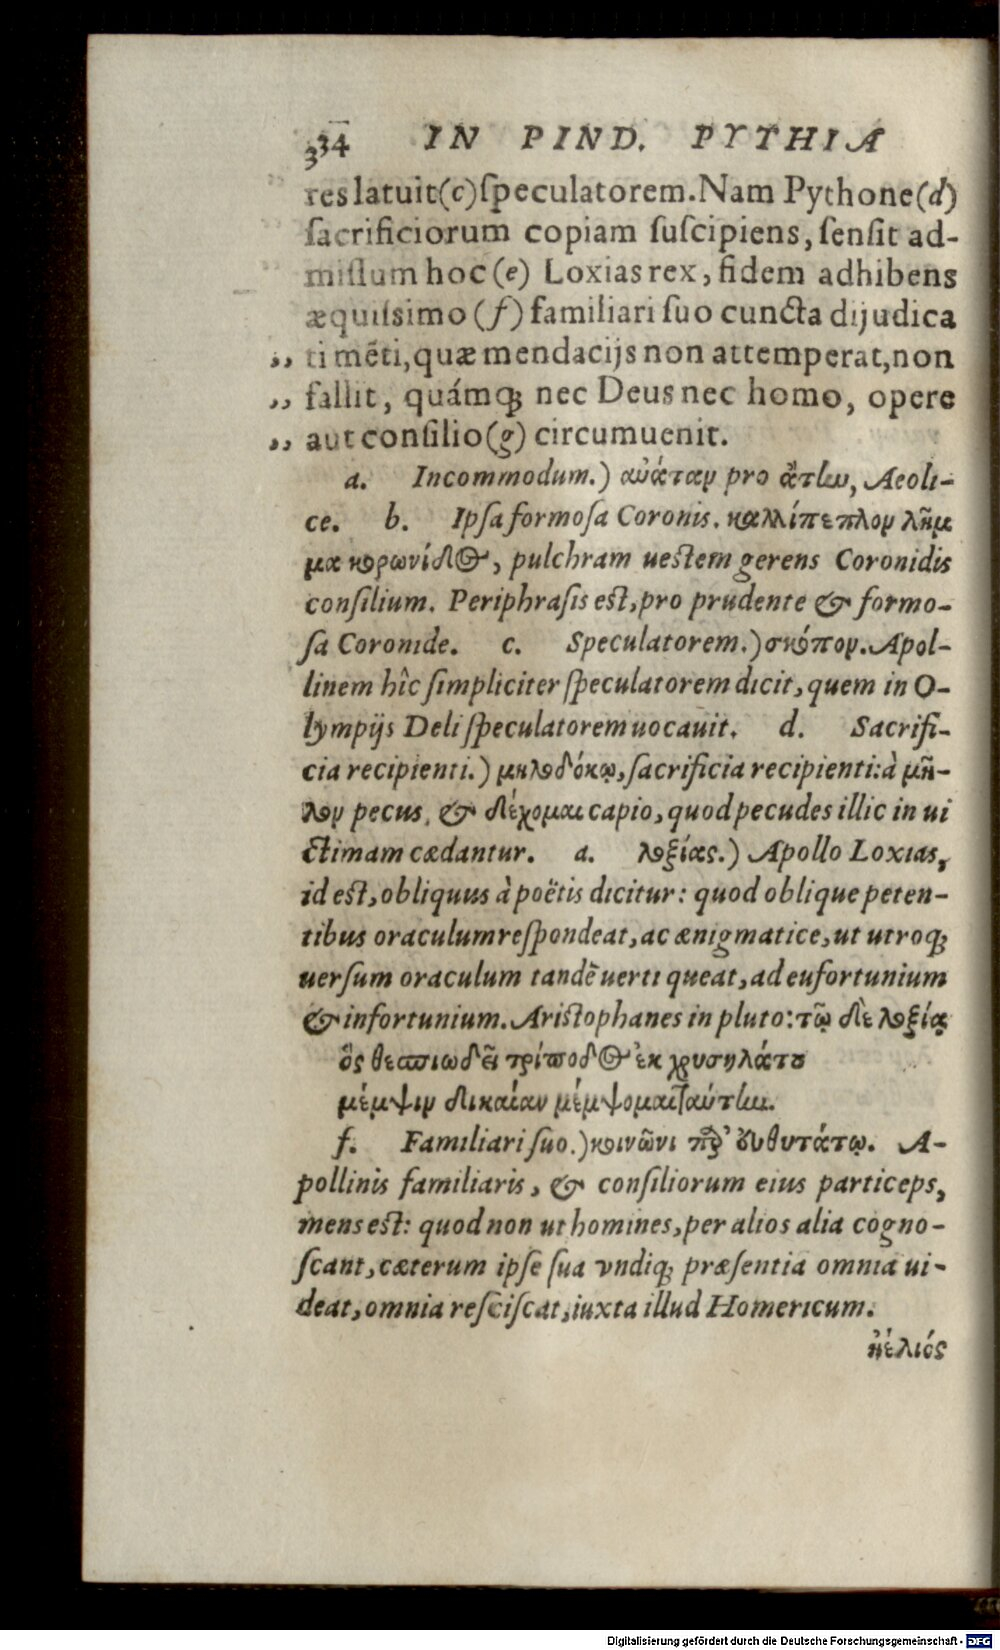 334 IN PIND. PYTHIA
res latuit(c)ſpeculatorem. Nam Pythone(d)
ſacrificiorum copiam ſuſcipiens, ſenſit ad-
miſſum hoc (e) Loxias rex, fidem adhibens
æquiſsimo (f) familiari ſuo cuncta dijudica
„ ti mẽti, quæ mendacijs non attemperat, non
„ fallit, quámꝗ; nec Deus nec homo, opere
„ aut conſilio(g) circumuenit.
a. Incommodum.) αὐάταν pro ἄτην, Aeoli-
ce. b. Ipſa formoſa Coronis. καλλίπεπλον λῆμ
μα κορωνίδος, pulchram ueſtem gerens Coronidis
conſilium. Periphraſis eſt, pro prudente & formo-
ſa Coronide. c. Speculatorem.) σκόπον. Apol-
linem hîc ſimpliciter ſpeculatorem dicit, quem in O-
lympijs Deli ſpeculatorem uocauit. d. Sacrifi-
cia recipienti.) μηλοδόκῳ, ſacrificia recipienti: à μῆ-
λον pecus, & δέχομαι capio, quod pecudes illic in ui
ctimam cædantur. a. λοξίας.) Apollo Loxias,
id eſt, obliquus à poëtis dicitur: quod oblique peten-
tibus oraculum reſpondeat, ac ænigmatice, ut utroꝗ;
uerſum oraculum tandẽ uerti queat, ad eufortunium
& infortunium. Ariſtophanes in pluto: τῷ δὲ λοξίᾳ
ὃς θεσπιωδεῖ τρίποδος ἐκ χρυσηλάτου
μέμψιν δικαίαν μέμψομαι ταύτην.
f. Familiari ſuo.) κοινῶνι παρ' εὐθυτάτῳ. A-
pollinis familiaris, & conſiliorum eius particeps,
mens eſt: quod non ut homines, per alios alia cogno-
ſcant, cæterum ipſe ſua vndiꝗ; præſentia omnia ui-
deat, omnia reſciſcat, iuxta illud Homericum.
ἠέλιός
Digitalisierung gefördert durch die Deutsche Forschungsgemeinschaft - DFG